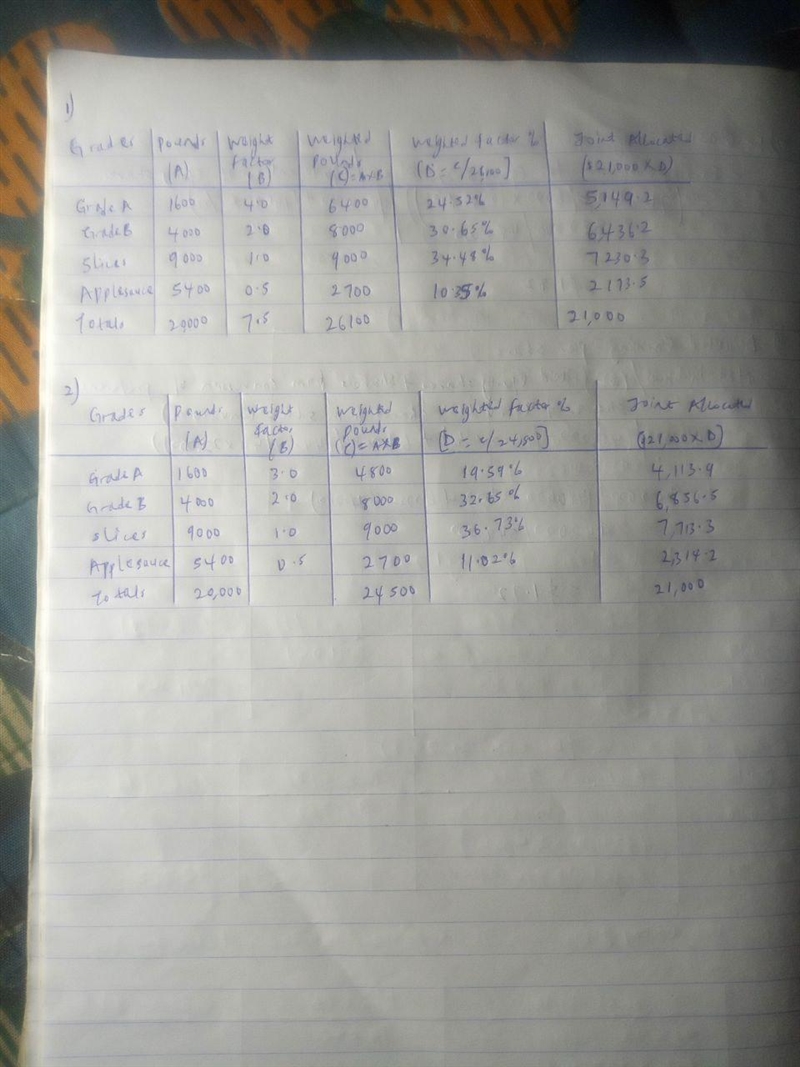 1)
Grades Pounds (A) Weight factor (B) Weighted Pounds (C)=A×B Weighted factor % (D = C/26,100] Joint Allocated ($21,000 × D)
Grade A 1600 4.0 6400 24.52% 5,149.2
Grade B 4000 2.0 8000 30.65% 6,436.2
Slices 9000 1.0 9000 34.48% 7230.3
Applesauce 5400 0.5 2700 2173.5
Totals 20000 7.5 26100 21,000
2)
Grades Pounds (A) Weight factor (B) Weighted Pounds (C)= A×B Weighted factor % [D = C/24,500] Joint Allocated ($21,000 × D)
Grade A 1600 3.0 4800 19.59% 4,113.9
Grade B 4000 2.0 8000 32.65% 6,856.5
Slices 9000 1.0 9000 36.73% 7,713.3
Applesauce 5400 0.5 2700 11.02% 2,314.2
Totals 20,000 24500 21,000